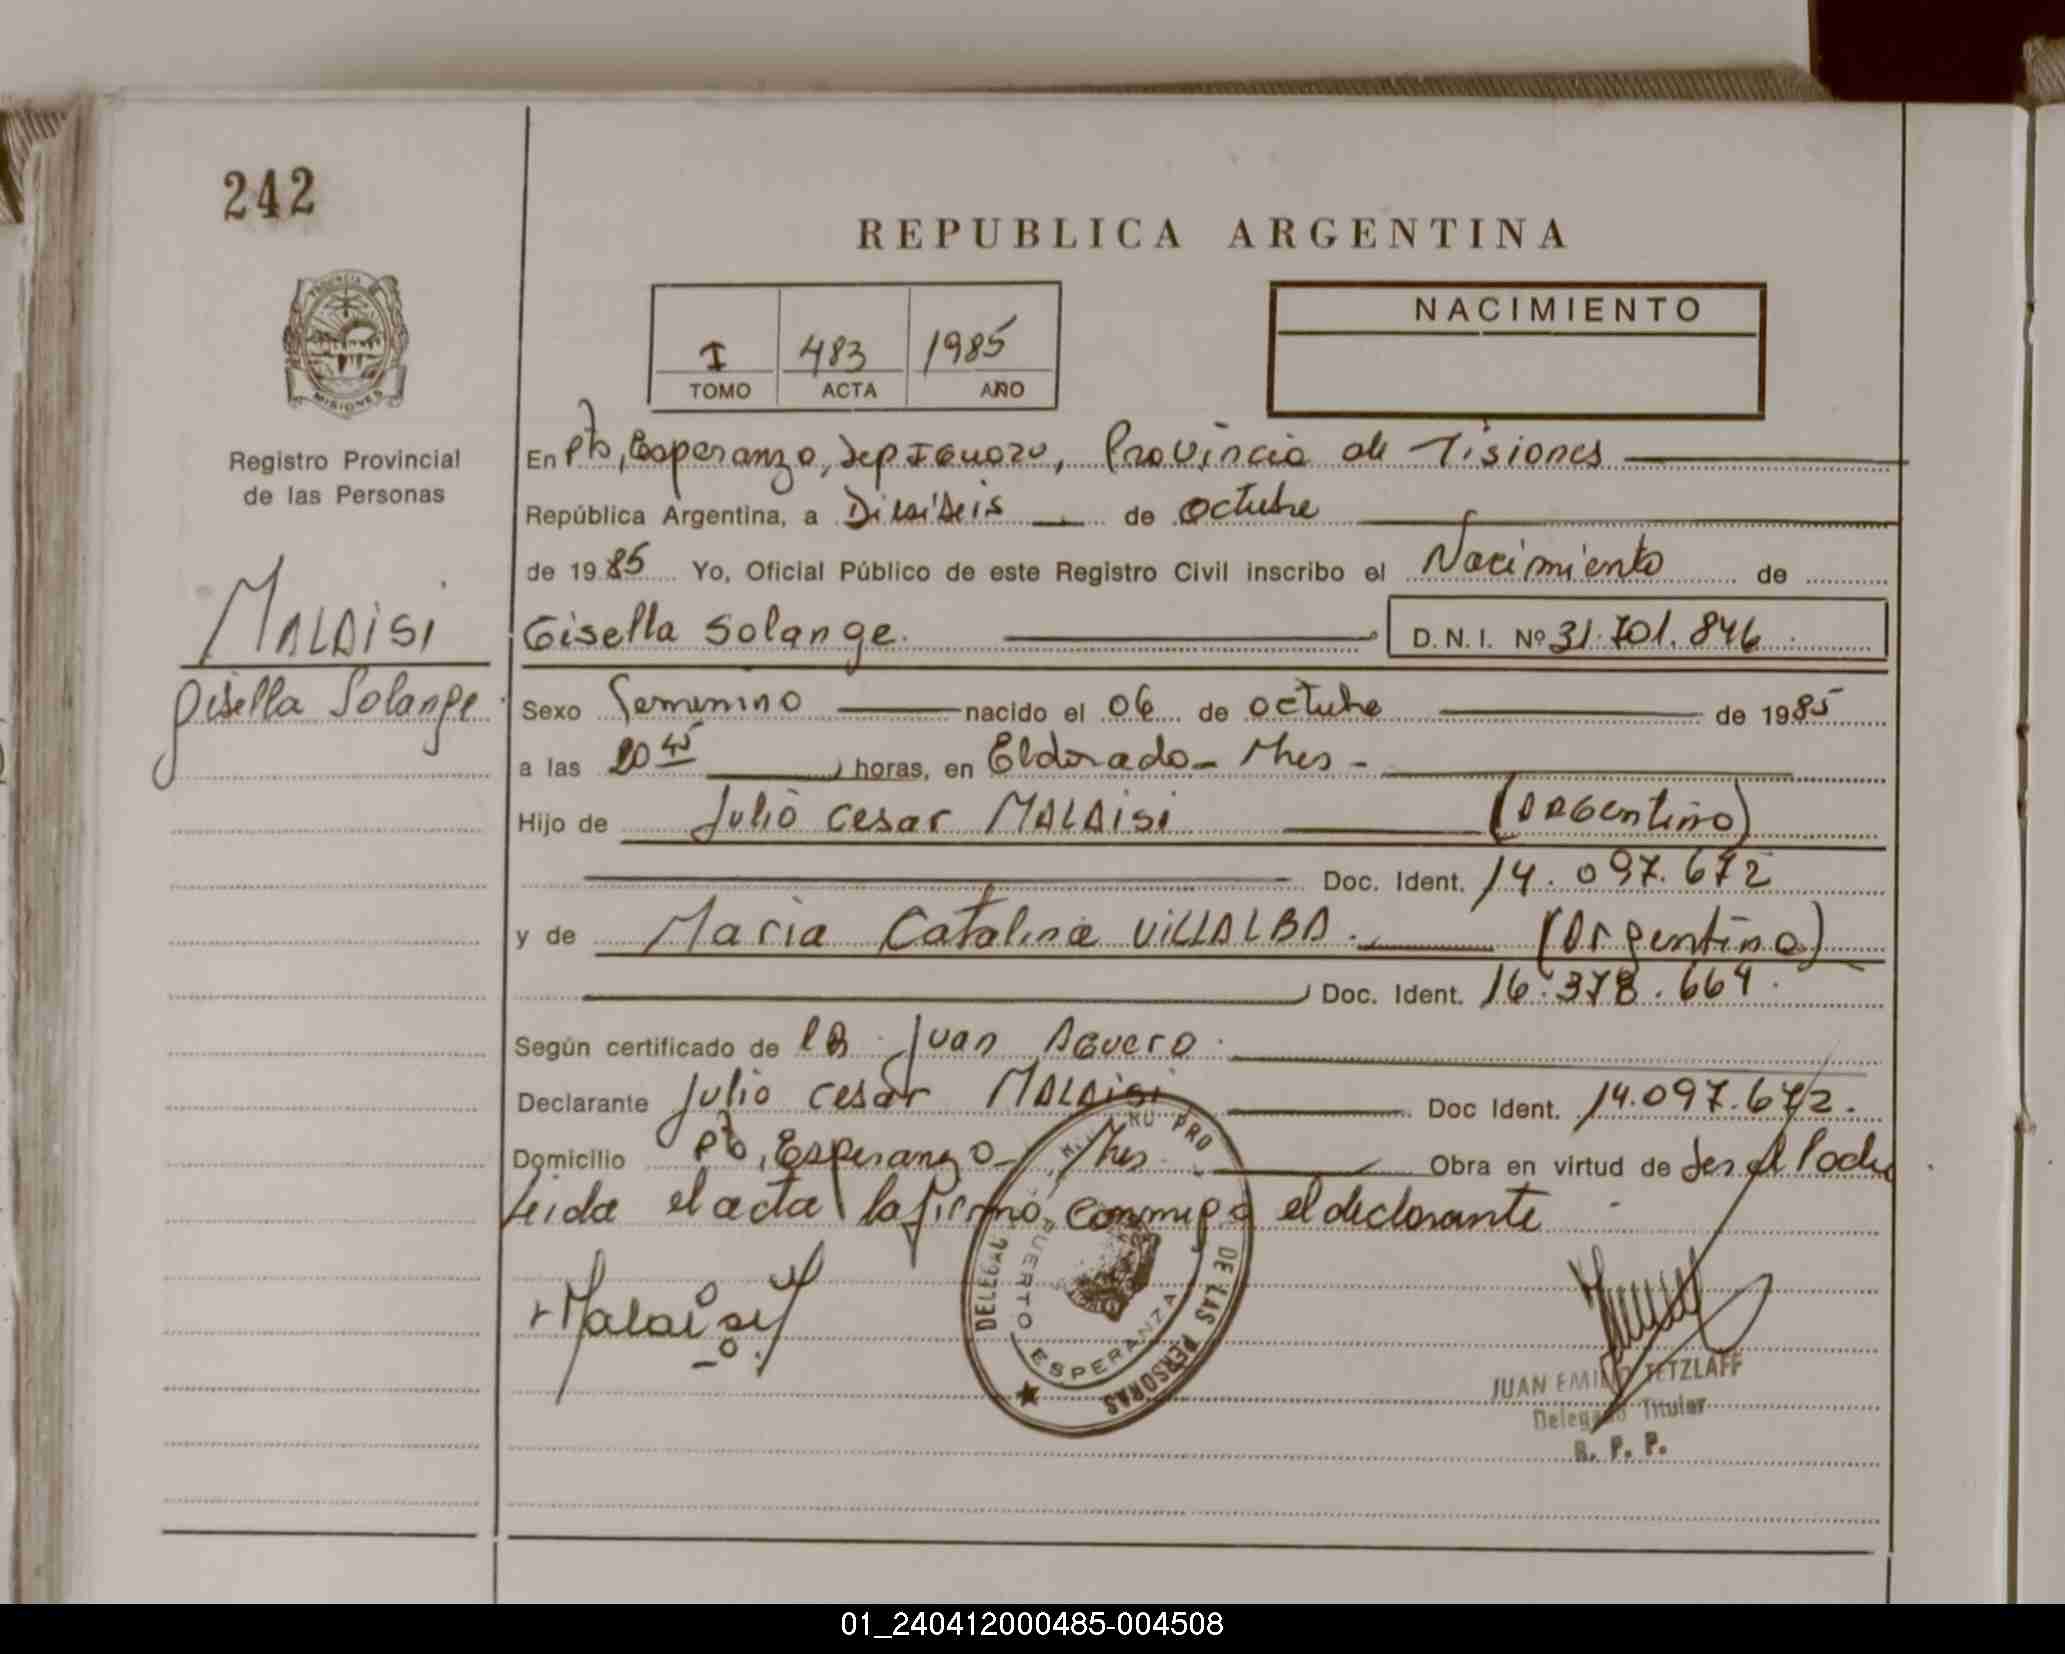 242
REPUBLICA ARGENTINA
PROVINCIA DE
MISIONES
I 483 1985
TOMO ACTA AÑO
NACIMIENTO
Registro Provincial
de las Personas
MALAISI
Gisella Solange
En Pto, Esperanza, Dep Iguazu, Provincia de Misiones
República Argentina, a Dieciseis de octubre
de 1985 Yo, Oficial Público de este Registro Civil inscribo el Nacimiento de
Gisella Solange. D. N. I. Nº 31.701.846
Sexo Femenino nacido el 06 de octubre de 1985
a las 20 45 horas, en Eldorado - Mnes -
Hijo de Julio Cesar MALAISI (Argentino)
Doc. Ident. 14.097.672
y de Maria Catalina VILLALBA. (Argentina)
Doc. Ident. 16.378.664
Según certificado de Juan Aguero
Declarante Julio Cesar MALAISI Doc Ident. 14.097.672.
Domicilio Pto, Esperanza - Mnes Obra en virtud de ser el Padre
Leida el acta la firma conmigo el declarante
Malaisi
DE LAS PERSONAS
PUERTO ESPERANZA
JUAN EMILIO TETZLAFF
Delegado Titular
R. P. P.
01_240412000485-004508